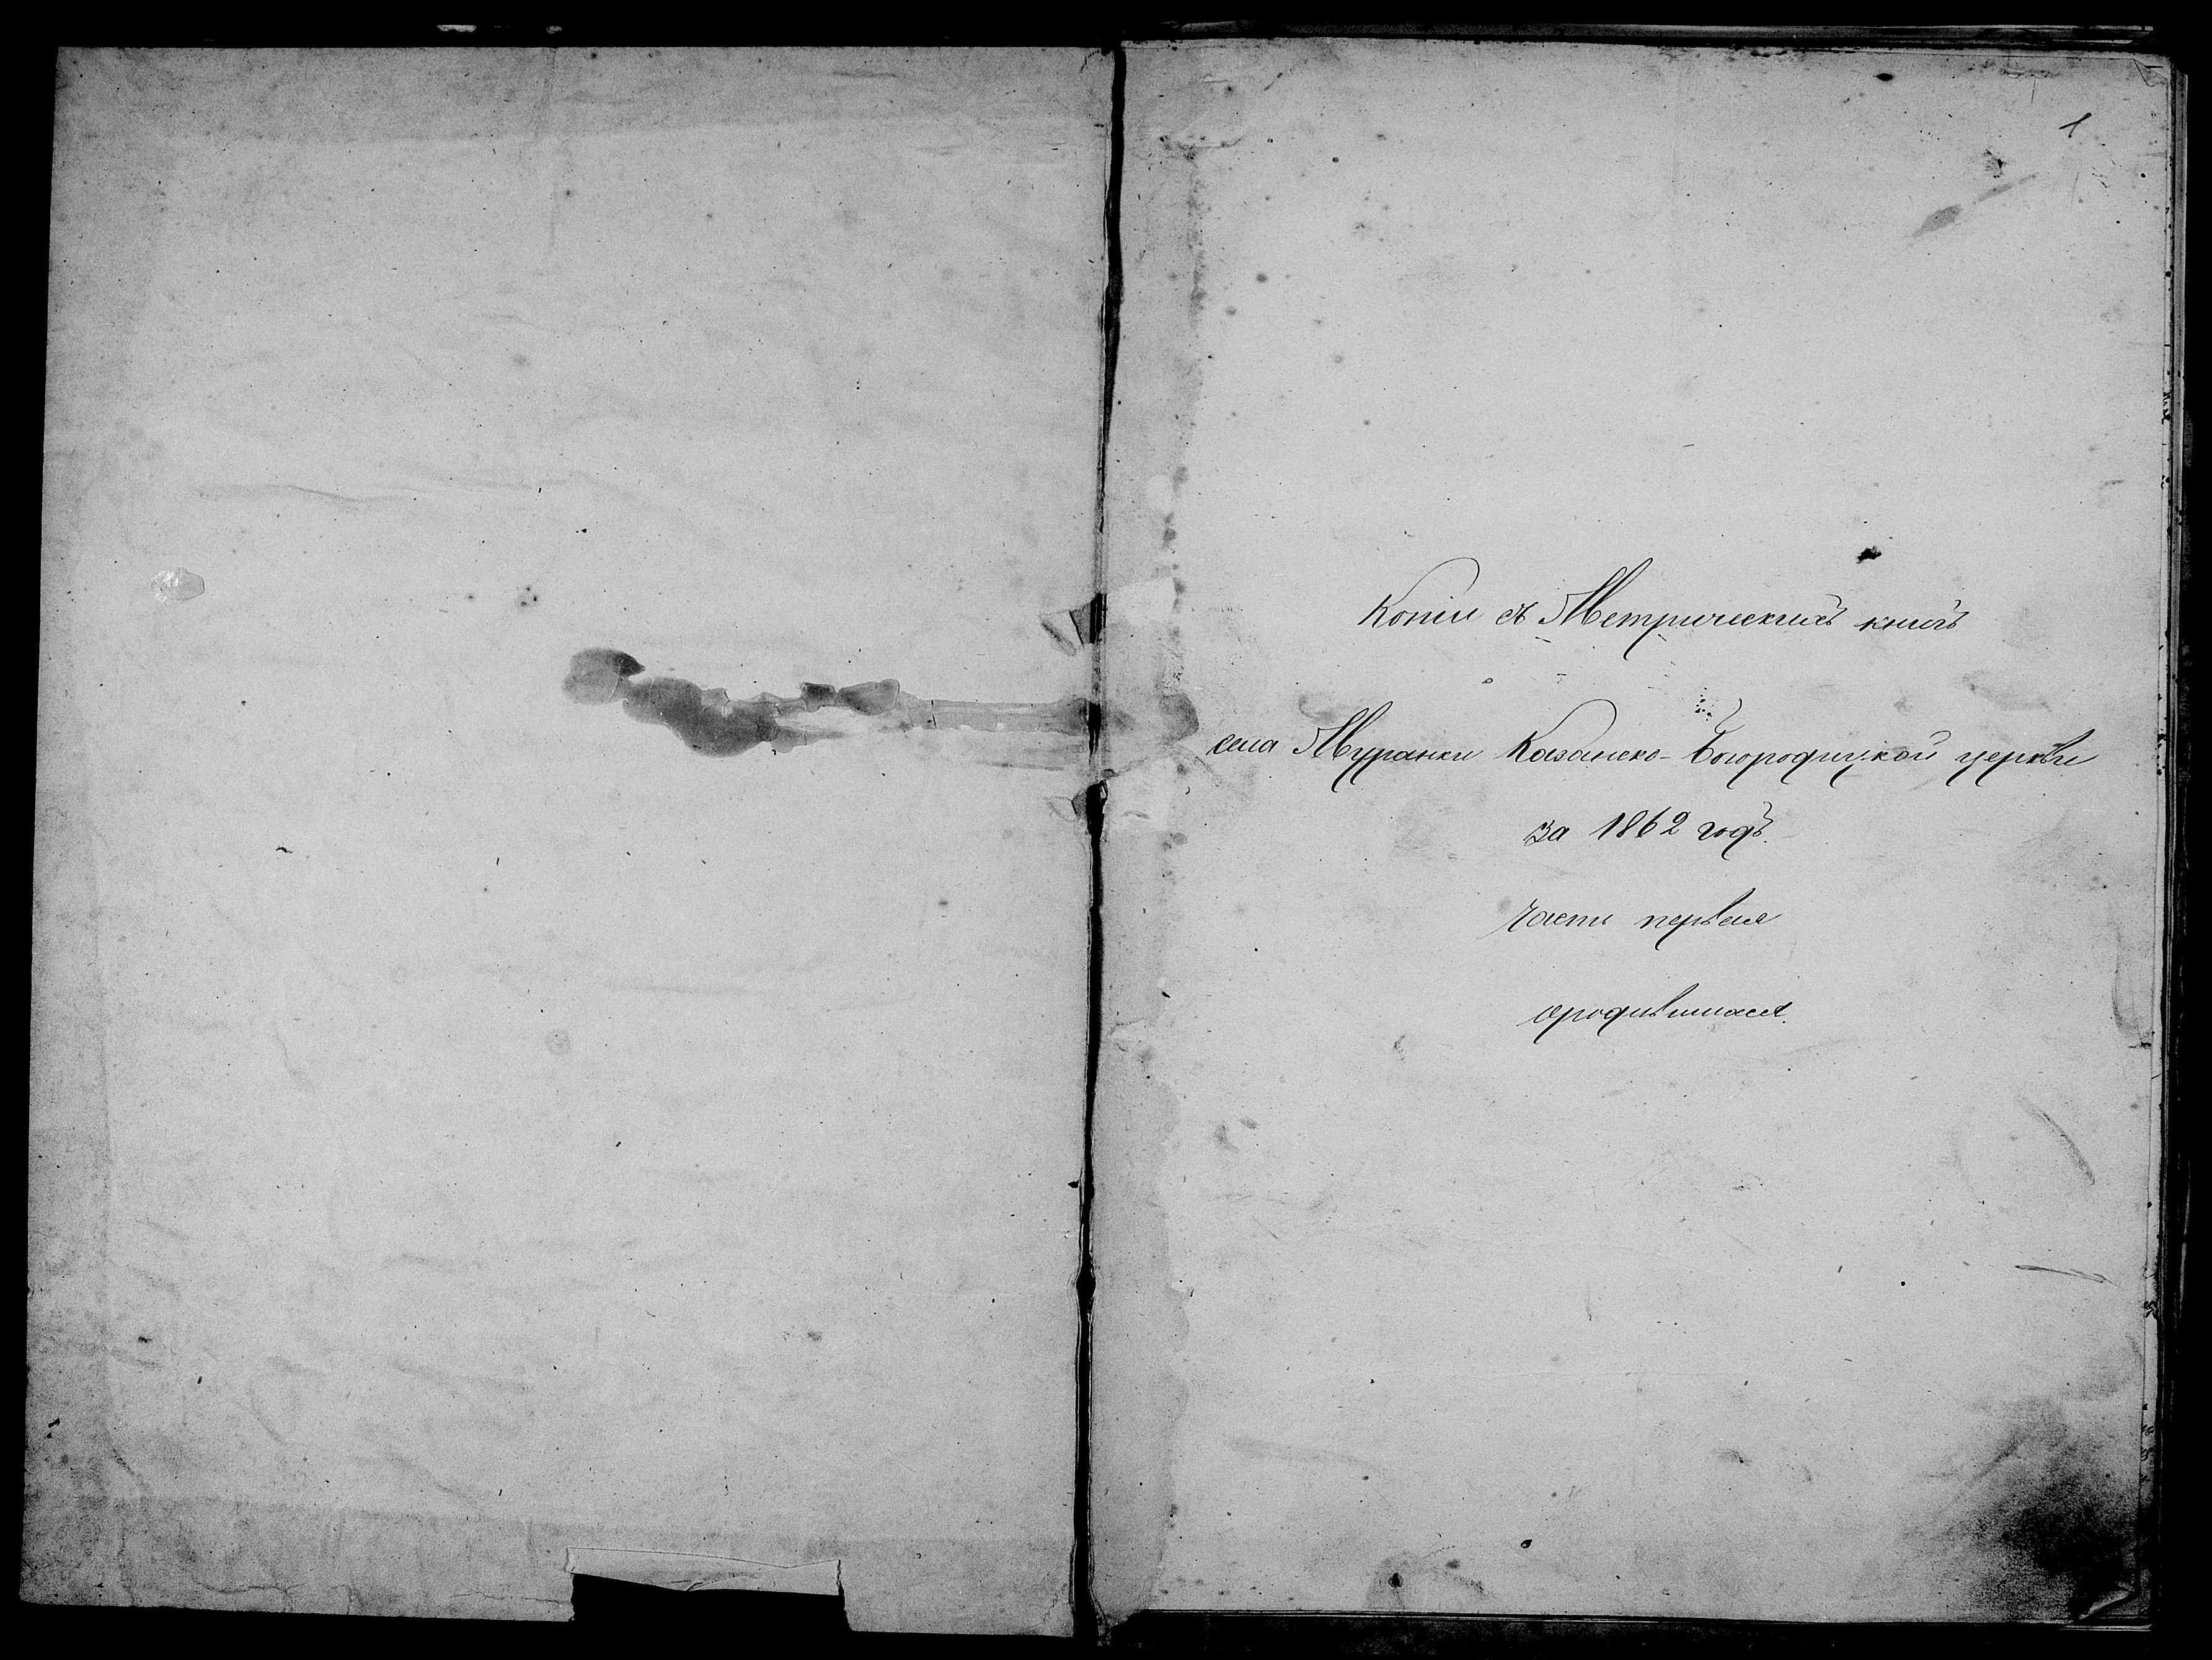 1
Копiи съ Метрическихъ книгъ
села Муранки Казанско-Богородицкой церкви
за 1862 годъ.
Часть первая
о родившихся.